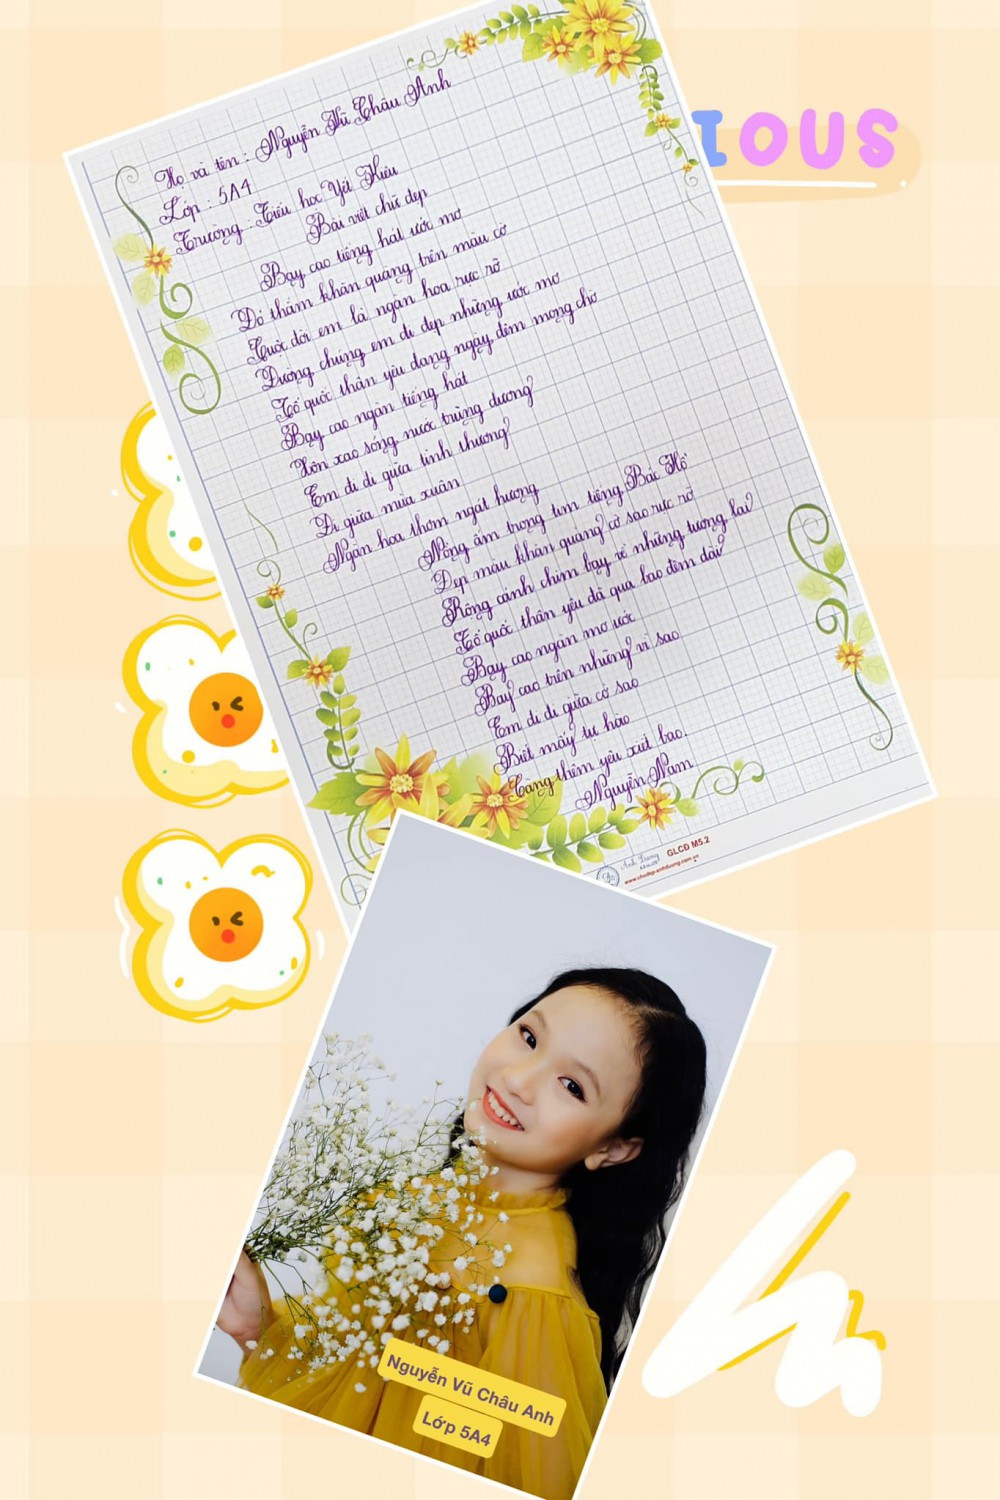 IOUS
Họ và tên : Nguyễn Vũ Châu Anh
Lớp : 5A4
Trường : Tiểu học Yết Kiêu
Bài viết chữ đẹp
Bay cao tiếng hát ước mơ
Đỏ thắm khăn quàng trên màu cờ
Cuộc đời em là ngàn hoa rực rỡ
Đường chúng em đi đẹp những ước mơ
Tổ quốc thân yêu đang ngày đêm mong chờ
Bay cao ngàn tiếng hát
Xôn xao sóng nước trùng dương
Em đi đi giữa tình thương
Đi giữa mùa xuân
Ngàn hoa thơm ngát hương
Nồng ấm trong tim tiếng Bác Hồ
Đẹp màu khăn quàng cờ sao rực rỡ
Rộng cánh chim bay về những tương lai
Tổ quốc thân yêu đã qua bao đêm dài
Bay cao ngàn mơ ước
Bay cao trên những vì sao
Em đi đi giữa cờ sao
Biết mấy tự hào
Càng thêm yêu xiết bao.
Nguyễn Nam
Ánh Dương
GLCD M5.2
www.chudep-anhduong.com.vn
Nguyễn Vũ Châu Anh
Lớp 5A4